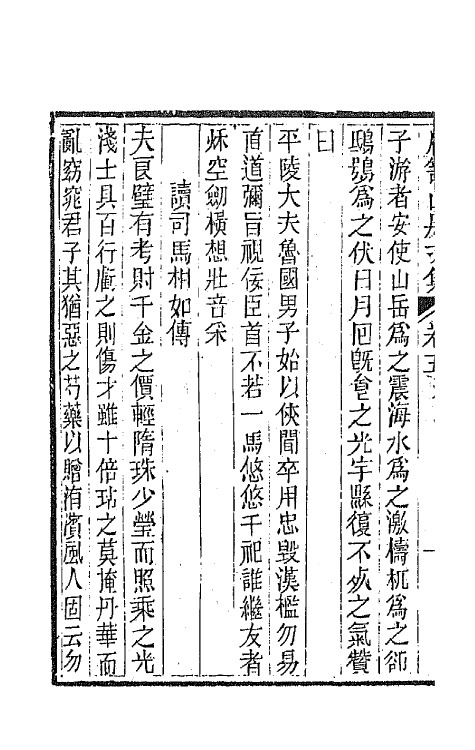 子游者安使山岳為之震海水為之激檮杌為之卻
鴟鴞為之伏日月回旣食之光宇縣復不之氣贊
曰
平陵大夫魯國男子始以俠聞卒用忠毀漢檻勿易
直道彌旨視佞臣首不若一馬悠悠千祀誰繼友者
牀空劒橫想壯音采
讀司馬相如傳
夫良璧有考則千金之價輕隋珠少瑩而照乘之光
淺士具百行虧之則傷才雖十倍玷之莫掩丹華而
亂窈窕君子其猶惡之芍藥以贈洧濱風人固云勿